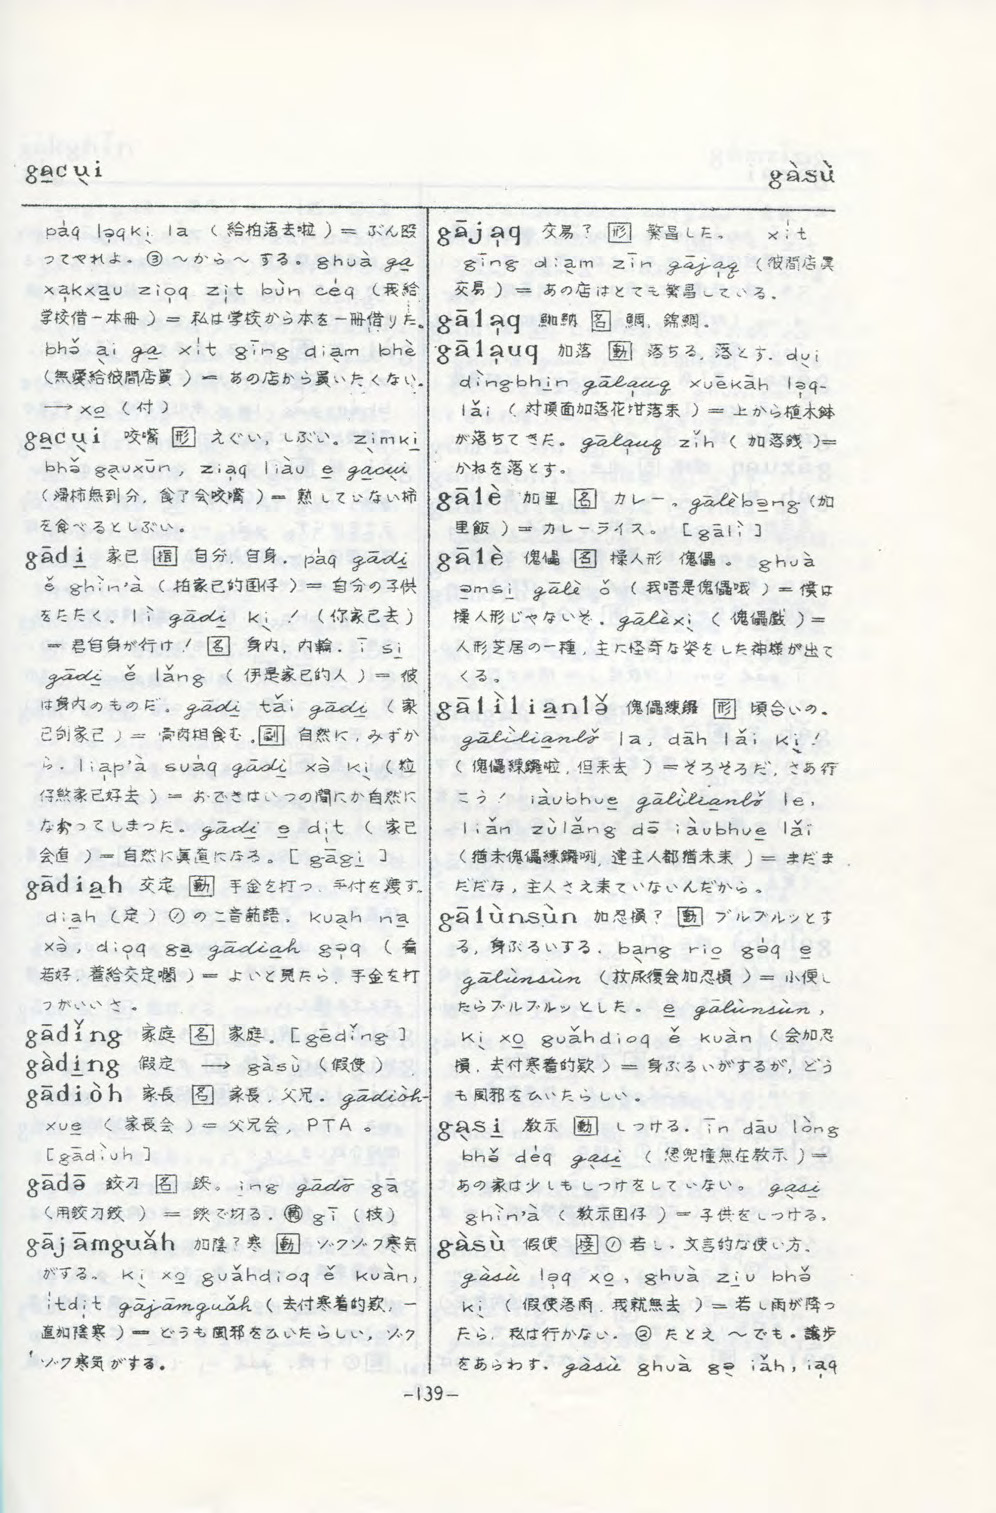 ga̱cu̖i
gàsù
páq lə̖qki̖ la ( 給拍落去啦 ) = ぶん殴
ってやれよ。③ 〜から〜する。ghuà ga̱
xa̖kxa̱u zioq zi̍t bùn céq (我給
学校借一本冊 ) = 私は学校から本を一冊借りた。
bhə̌ ài ga̱ xi̍t gīng diàm bhè
(無愛給彼間店買 ) = あの店から買いたくない。
→ xo̱ (付)
ga̱cu̖i 咬嘴 [形] えぐい, しぶい。zimki̱
bhə̌ ga̖uxūn, ziaq liàu e̱ ga̱cu̖i
(滯柿無到分, 食了会咬嘴 ) = 熟していない柿
を食べるとしぶい。
gādi̱ 家己 [指] 自分, 自身. páq gādi̱
ě ghìn'à ( 拍家己的囝仔 ) = 自分の子供
をたたく. lì gādi̱ ki̖ ! (你家己去)
= 君自身が行け! [名] 身内, 内輪. ī si̱
gādi̱ ě lǎng ( 伊是家己的人 ) = 彼
は身内のものだ。gādi̱ tǎi gādi̱ ( 家
己刣家己 ) = 骨肉相食む.[副] 自然に, みずか
ら. lia̍p'à suáq gādi̱ xə̀ ki̖ ( 粒
仔煞家己好去 ) = おできはいつの間にか自然に
なおってしまった。gādi̱ e̱ di̍t ( 家己
会直 ) = 自然に真直になる。[ gāgi̱ ]
gādia̱h 交定 [動] 手金を打つ, 手付を渡す.
dia̱h (定) ① の二音節語. kua̖h na̱
xə̀, dioq ga̱ gādia̱h gəq ( 看
若好, 著給交定閣 ) = よいと見たら, 手金を打
つがいいさ。
gādǐng 家庭 [名] 家庭. [gēdǐng ]
gàdi̱ng 假定 → gàsù (假使)
gādiòh 家長 [名] 家長, 父兄。gādiòh-
xue̱ ( 家長会 ) = 父兄会, PTA 。
[gādiùh ]
gādə̄ 鉸刀 [名] 鋏。ing gādə̄ gā
(用鉸刀鉸 ) = 鋏で切る. gī (枝)
gājāmguǎh 加陰?寒 [動] ゾクゾク寒気
がする。ki̖ xo̱ guǎhdioq ě kuàn,
i̍tdi̍t gājāmguǎh ( 去付寒着的款, 一
直加陰寒 ) = どうも風邪をひいたらしい, ゾク
ゾク寒気がする。
gājaq 交易? [形] 繁昌した. xi̍t
gīng diàm zīn gājaq (彼間店真
交易 ) = あの店はとても繁昌している.
gālaq 鮋鯻 [名] 鯛, 錦鯛.
gālauq 加落 [動] 落ちる, 落とす. du̖i
dìngbhi̱n gālauq xuēkāh lə̖q-
lǎi ( 対頂面加落花坩落来 ) = 上から植木鉢
が落ちてきた。gālauq zǐh ( 加落銭 )=
かねを落とす。
gālè 加里 [名] カレー。gālèbəng (加
里飯 ) = カレーライス。[gālì ]
gālè 傀儡 [名] 操人形 傀儡。ghuà
əmsi̱ gālè ǒ ( 我唔是傀儡哦 ) = 僕は
操人形じゃないぞ. gālèxi̖ ( 傀儡戯 ) =
人形芝居の一種, 主に怪奇な姿をした神様が出て
くる。
gālìlia̱nlə̌ 傀儡練鑼 [形] 頃合いの.
gālìlia̱nlə̌ la, dāh lǎi ki̖!
( 傀儡練鑼啦, 但来去 ) = そろそろだ, さあ行
こう! iàubhue̱ gālìlia̱nlə̌ le,
liǎn zùlǎng də̄ iàubhue̱ lǎi
( 猶未傀儡練鑼咧, 連主人都猶未来 ) = まだま
だだな, 主人さえ来ていないんだから。
gālùnsùn 加忍損? [動] ブルブルッとす
る, 身ぶるいする. ba̖ng rio̱ gəq e̱
gālùnsùn (放尿復会加忍損 ) = 小便し
たらブルブルッとした。e̱ gālùnsùn,
ki̖ xo̱ guǎhdioq ě kuàn (会加忍
損, 去付寒着的款 ) = 身ぶるいがするが, どう
も風邪をひいたらしい。
ga̖si̱ 教示 [動] しつける. īn dāu lòng
bhə̌ déq ga̖si̱ ( 𪜶兜攏無在教示 ) =
あの家は少しもしつけをしていない。ga̖si̱
ghìn'à ( 教示囝仔 ) = 子供をしつける.
gàsù 假使 [接] ① 若し. 文言的な使い方.
gàsù lə̖q xo̱, ghuà ziu̱ bhə̌
ki̖ ( 假使落雨, 我就無去 ) = 若し雨が降っ
たら, 私は行かない. ② たとえ 〜でも. 譲歩
をあらわす. gàsù ghuà gə̱ iǎh, iaq
-139-